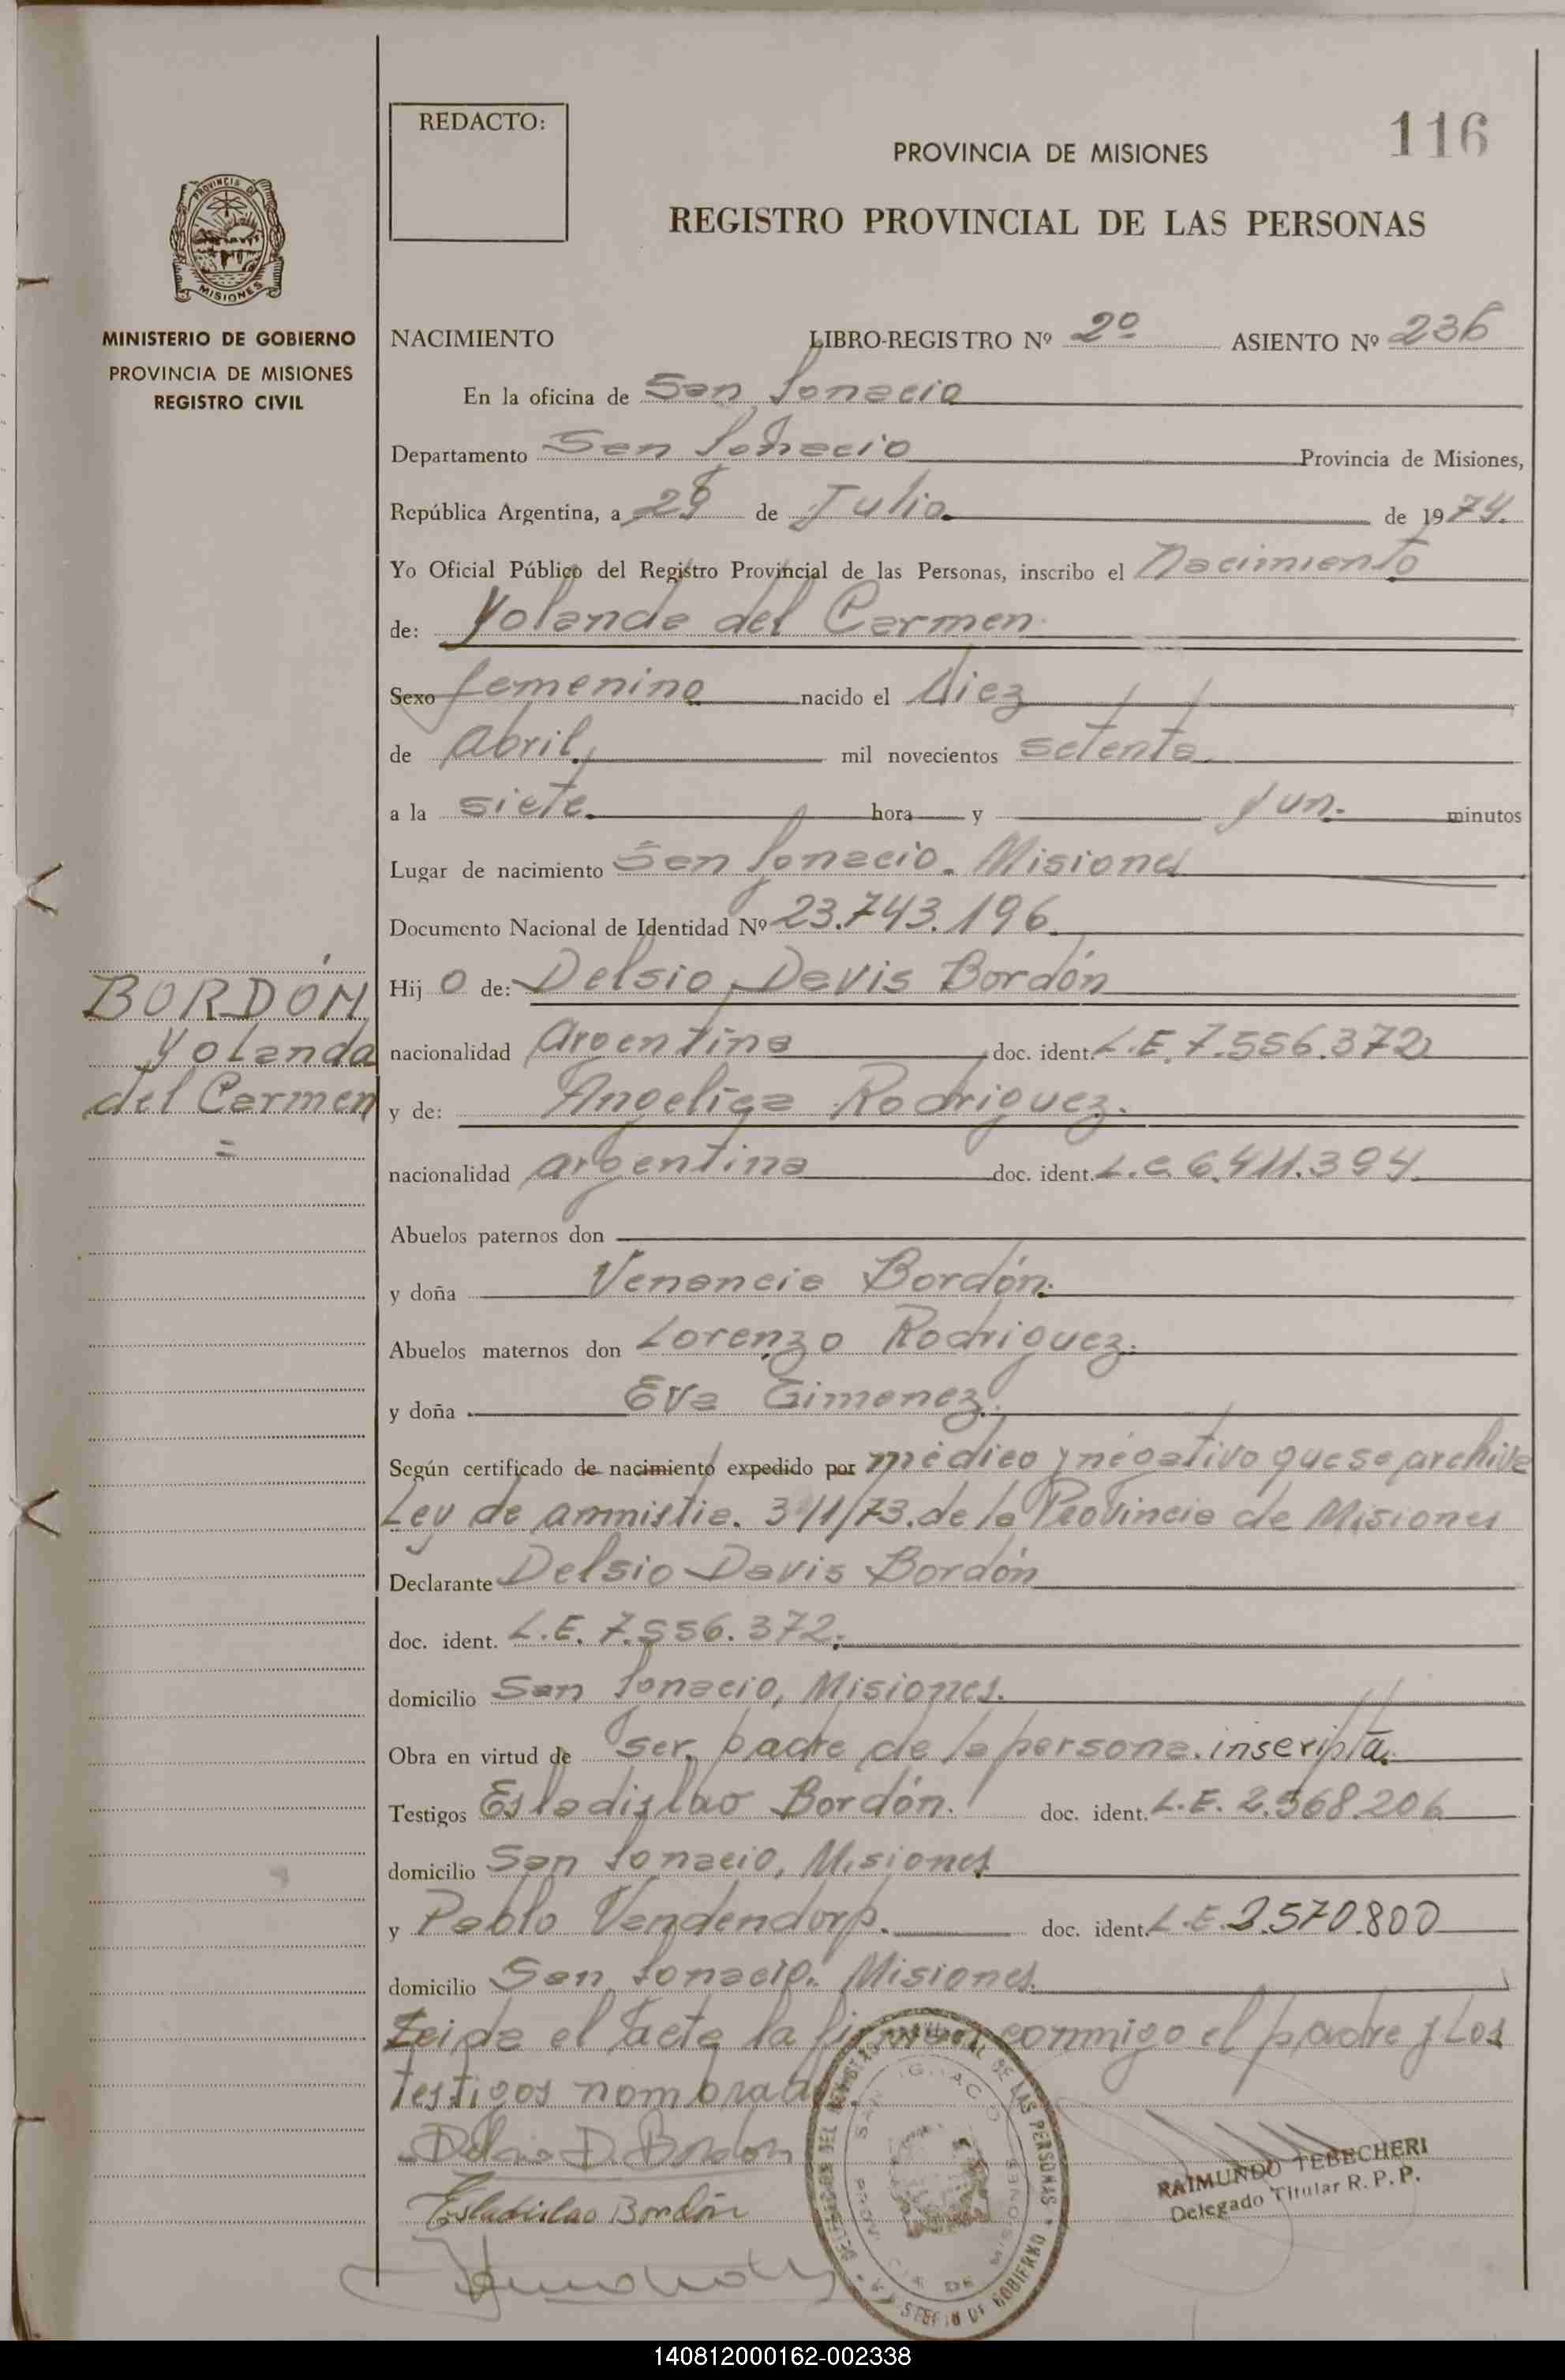 REDACTO:
116
PROVINCIA DE MISIONES
REGISTRO PROVINCIAL DE LAS PERSONAS
PROVINCIA DE
MISIONES
MINISTERIO DE GOBIERNO
PROVINCIA DE MISIONES
REGISTRO CIVIL
NACIMIENTO LIBRO-REGISTRO Nº 2º ASIENTO Nº 236
En la oficina de San Ignacio
Departamento San Ignacio Provincia de Misiones,
República Argentina, a 29 de Julio de 1974.
Yo Oficial Público del Registro Provincial de las Personas, inscribo el Nacimiento
de: Yolanda del Carmen
Sexo femenino nacido el diez
de abril, mil novecientos setenta
a la siete hora y un. minutos
Lugar de nacimiento San Ignacio. Misiones
Documento Nacional de Identidad Nº 23.743.196
BORDÓN
Yolanda
del Carmen
=
Hij o de: Delsio Davis Bordón
nacionalidad argentina doc. ident. L.E. 7.556.372
y de: Angelica Rodriguez.
nacionalidad argentina doc. ident. L.C. 6.411.394
Abuelos paternos don
y doña Venancia Bordón.
Abuelos maternos don Lorenzo Rodriguez.
y doña Eva Gimenez.
Según certificado de nacimiento expedido por médico y negativo que se archiva
Ley de amnistia. 311/73. de la Provincia de Misiones
Declarante Delsio Davis Bordón
doc. ident. L.E. 7.556.372.
domicilio San Ignacio, Misiones.
Obra en virtud de ser, padre de la persona. inscripta.
Testigos Estadislao Bordón. doc. ident. L.E. 2.568.206
domicilio San Ignacio, Misiones
y Pablo Vandendorp. doc. ident. L.E. 3.570.800
domicilio San Ignacio. Misiones.
Leida el acta la firman conmigo el padre y Los
testigos nombrados
Delsio D. Bordon
Estadislao Bordón
DELEGACION DEL REGISTRO PROVINCIAL DE LAS PERSONAS
SAN IGNACIO
PROVINCIA DE MISIONES
MINISTERIO DE GOBIERNO
RAIMUNDO TEBECHERI
Delegado Titular R. P. P.
140812000162-002338